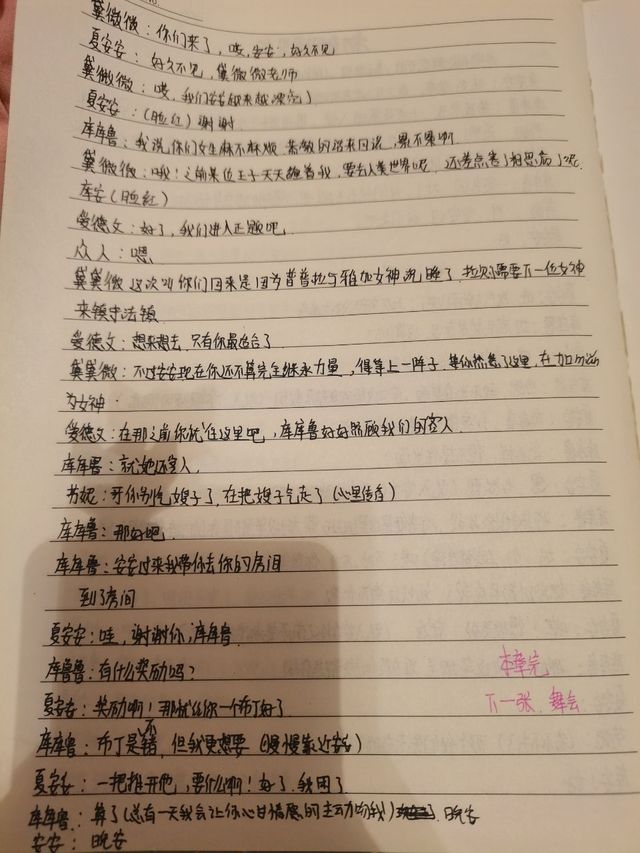 黛薇薇：你们来了，哎，安安，好久不见
夏安安：好久不见，黛薇薇老师
黛薇薇：哎，我们安安越来越漂亮了
夏安安：（脸红）谢谢
库库鲁：我说你们女生麻不麻烦 客微的话来回说，累不累啊
黛薇薇：哦！之前某位王子天天缠着我，要去人类世界呢，还差点患了相思病了呢.
库安（脸红）
爱德文：好了，我们进入正题吧
众人：嗯
黛黛薇 这次叫你们回来是因为普普拉与雅加女神沉睡了，拉贝尔需要下一位女神
来镇守法镇
爱德文：想来想去，只有你最适合了
黛黛薇：不过安安现在你还不算完全继承力量，得等上一阵子，等你熟悉了这里，在加
为女神.
爱德文：在那之前你就住这里吧，库库鲁好好照顾我们的客人
库库鲁：就她还客人.
书妮：哥你别吃嫂子了，在把嫂子气走了（心里传音）
库库鲁：那好吧.
库库鲁：安安过来我带你去你的房间
到了房间
夏安安：哇，谢谢你，库库鲁
库鲁鲁：有什么奖励吗？
夏安安：奖励啊！那就给你一个布丁好了
库库鲁：布丁是不错，但我更想要（慢慢靠近安安）
夏安安：一把推开他，要什么啊！好了，我困了
库库鲁：算了（总有一天我会让你心甘情愿的主动吻我）晚安
安安：晚安
本章完
下一张 舞会